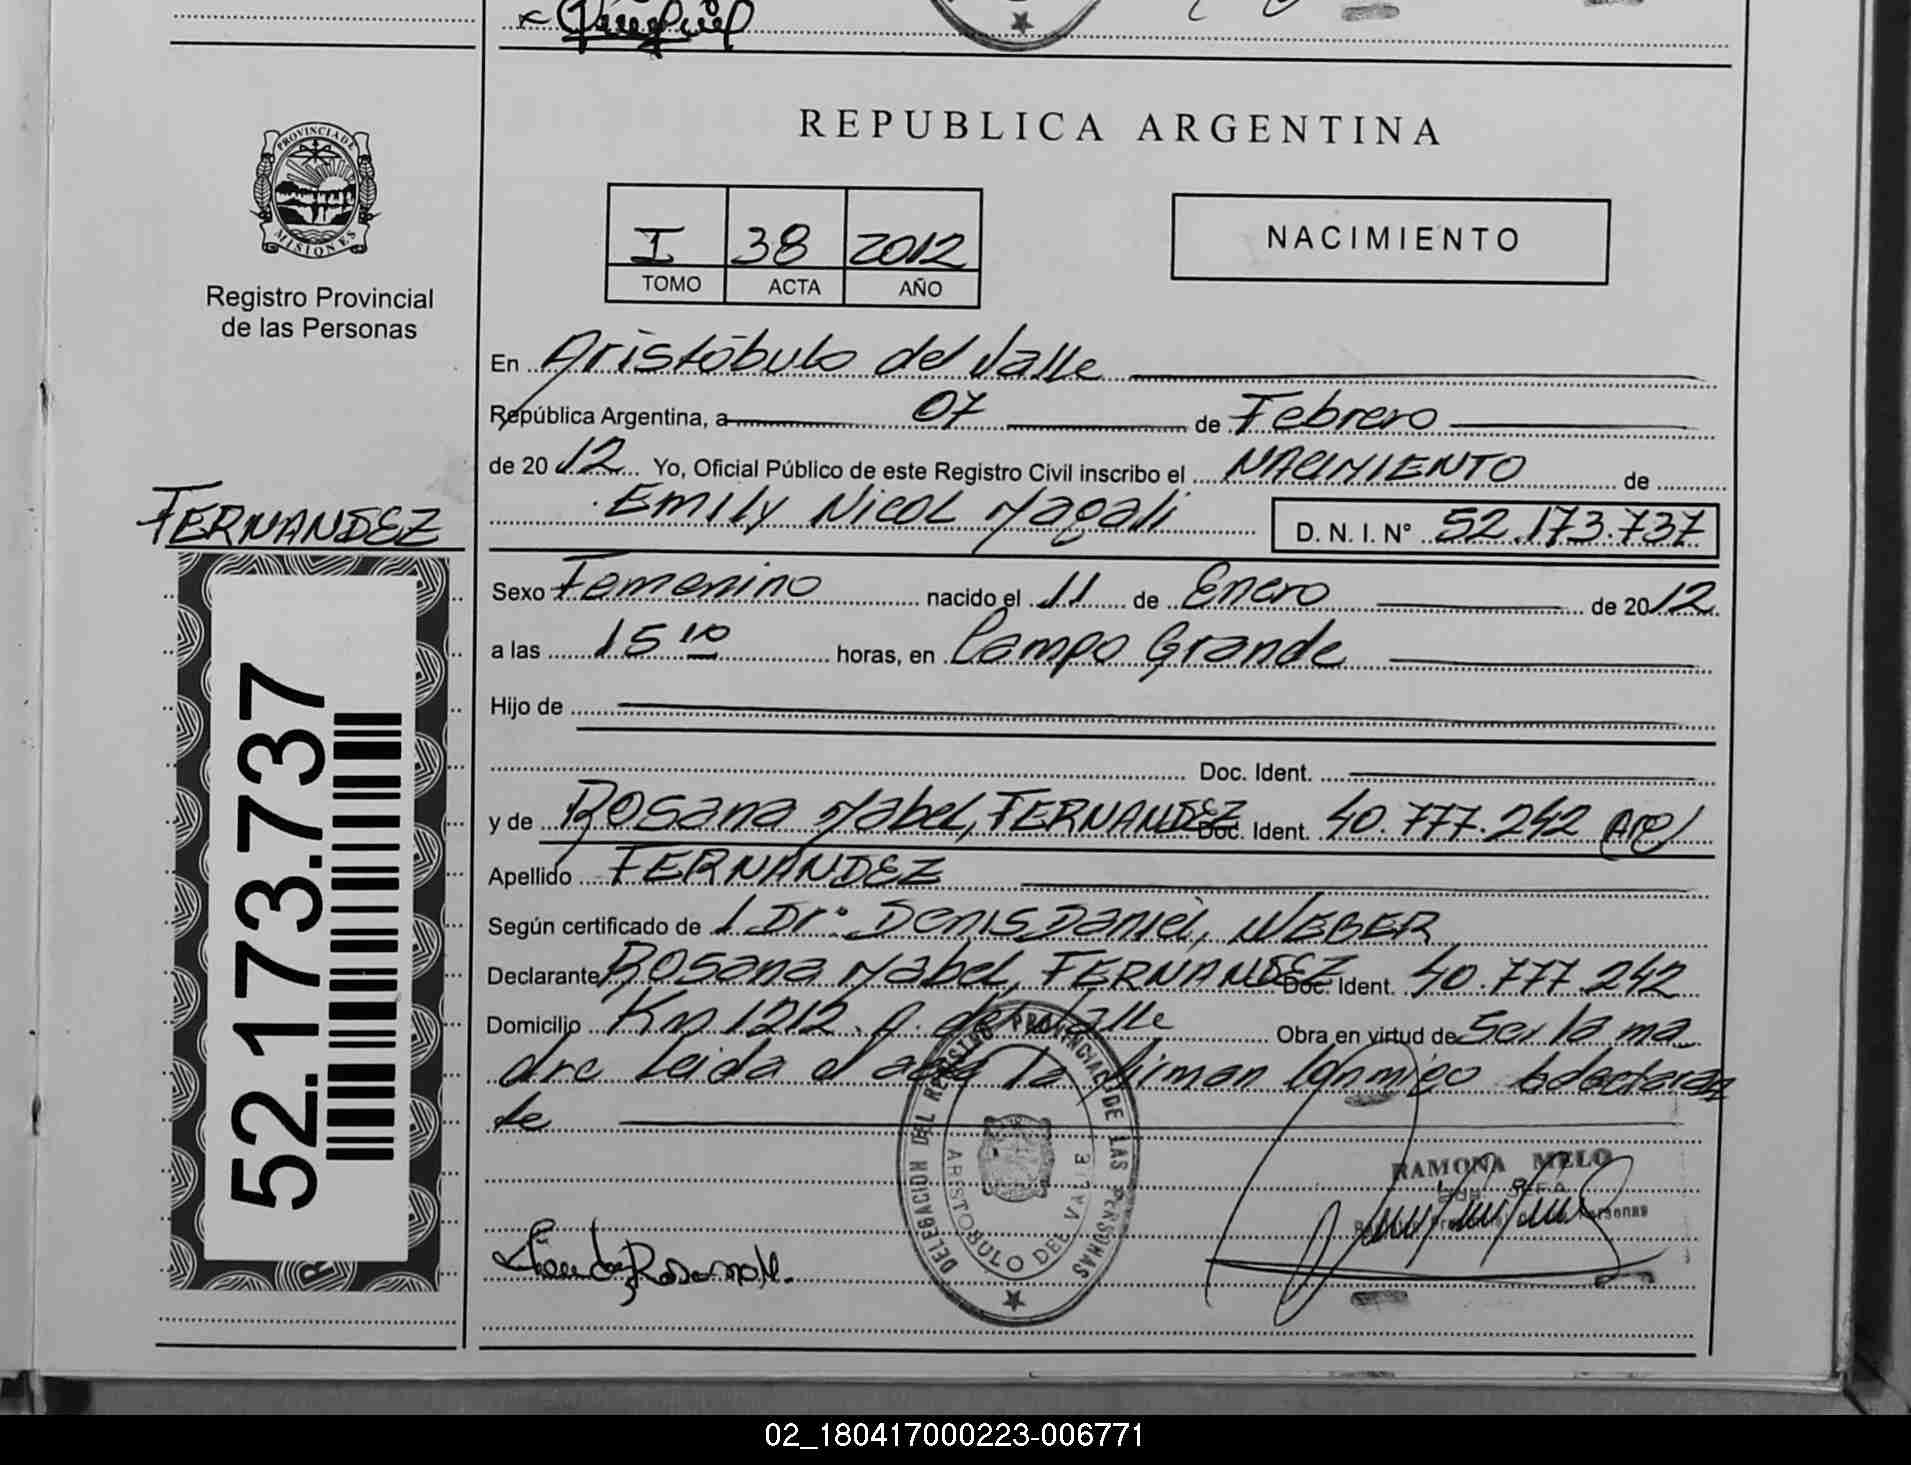 REPUBLICA ARGENTINA
PROVINCIA DE
MISIONES
Registro Provincial
de las Personas
I 38 2012
TOMO ACTA AÑO
NACIMIENTO
En Aristóbulo del Valle
República Argentina, a 07 de Febrero
de 2012 Yo, Oficial Público de este Registro Civil inscribo el NACIMIENTO de
Emily Nicol Magali D. N. I. Nº 52.173.737
FERNANDEZ
52.173.737
Sexo Femenino nacido el 11 de Enero de 2012
a las 15 10 horas, en Campo Grande
Hijo de
Doc. Ident.
y de Rosana Mabel, FERNANDEZ Doc. Ident. 40.777.242 Arg
Apellido FERNANDEZ
Según certificado de 1 Dr. Denis Daniel, WEBER
Declarante Rosana Mabel, FERNANDEZ Doc. Ident. 40.777.242
Domicilio Km 1212. A. del Valle Obra en virtud de Ser la ma
dre Leida el acta la firman conmigo la declaran
te
DELEGACION DEL REGISTRO PROVINCIAL DE LAS PERSONAS
ARISTOBULO DEL VALLE
RAMONA MELO
JEFA
Registro Provincial de las Personas
02_180417000223-006771